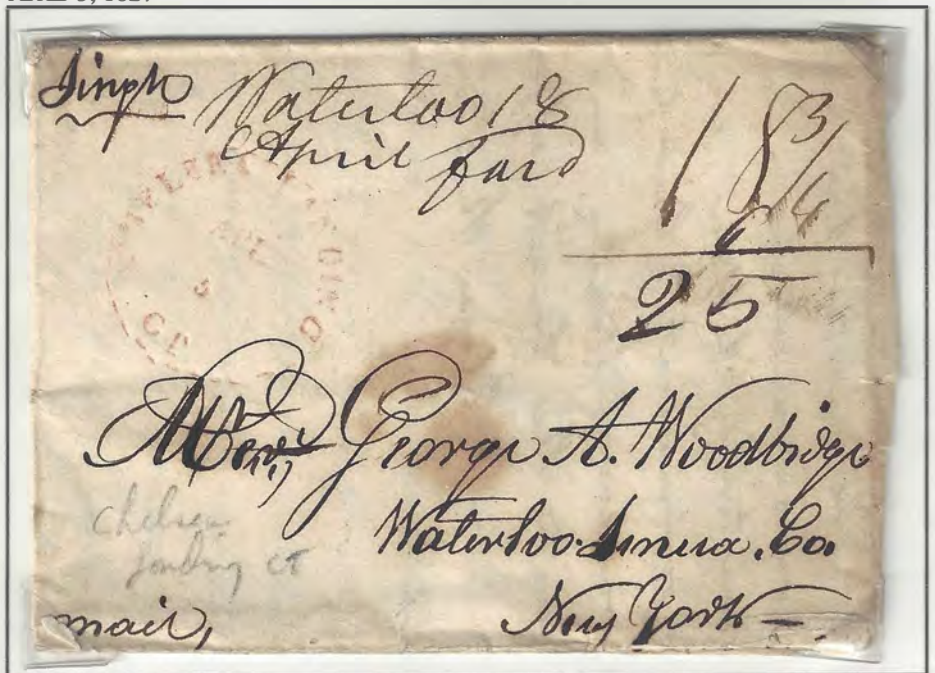 Single
Waterloo 18
April ford
18 3/4
6
25
APR
5
CT
George A. Woodbridge
Waterloo Seneca. Co.
New York
Chelsea
Landing CT
mail,